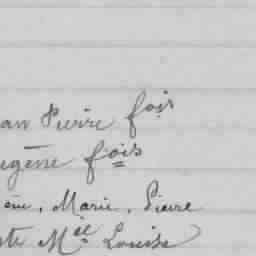 an Pierre fois
ugène fois
ène, Marie, Pierre
te M^elle Louise